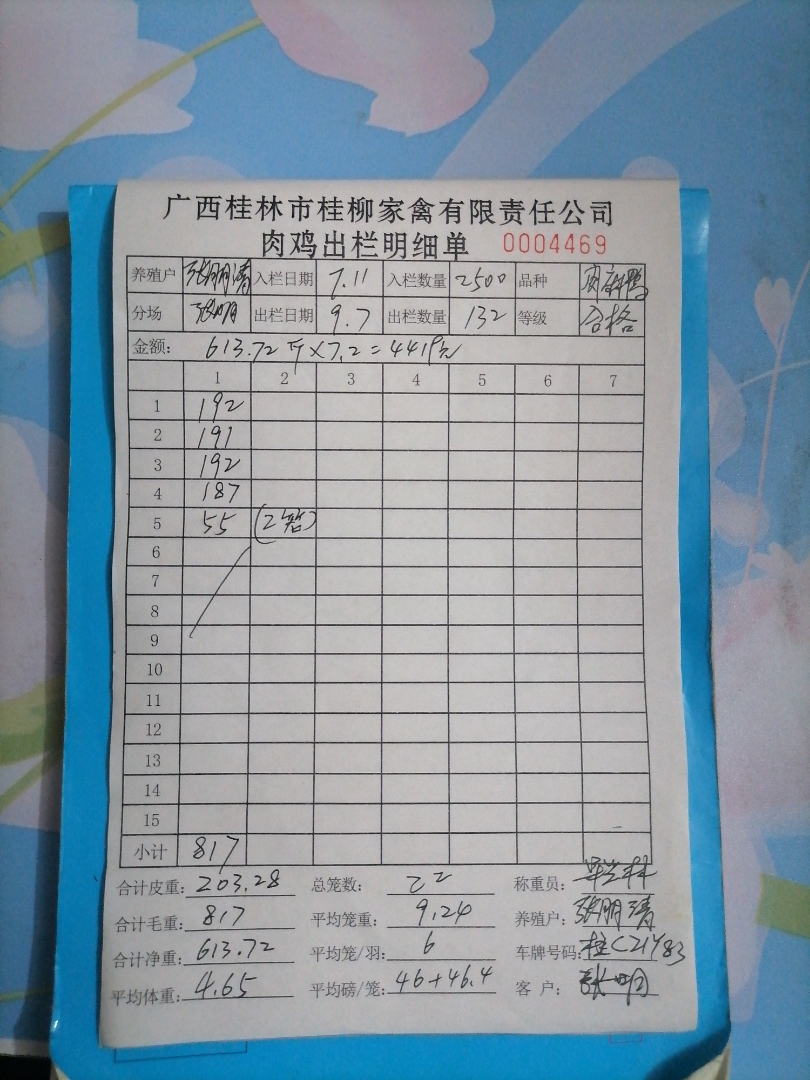 广西桂林市桂柳家禽有限责任公司
肉鸡出栏明细单 0004469
养殖户 张朋清 入栏日期 7.11 入栏数量 2500 品种
分场 张明 出栏日期 9.7 出栏数量 132 等级 合格
金额: 613.72斤×7.2=4419元
1 2 3 4 5 6 7
1 192
2 191
3 192
4 187
5 55 (2笼)
6
7
8
9
10
11
12
13
14
15
小计 817
合计皮重: 203.28 总笼数: 22 称重员:
合计毛重: 817 平均笼重: 9.24 养殖户: 张朋清
合计净重: 613.72 平均笼/羽: 6 车牌号码: 桂C21Y83
平均体重: 4.65 平均磅/笼: 46+46.4 客 户: 张明